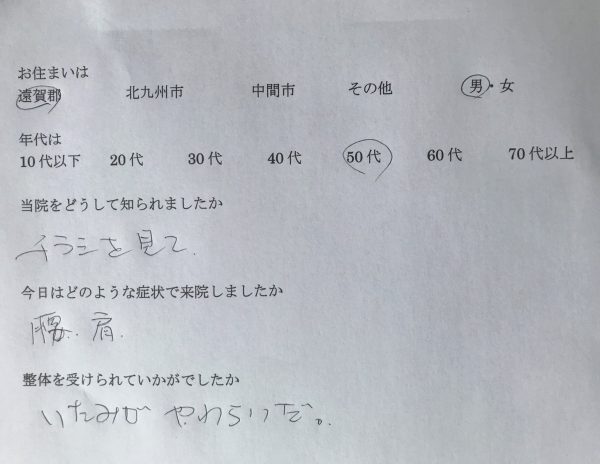 お住まいは
遠賀郡 北九州市 中間市 その他 男・女
年代は
10代以下 20代 30代 40代 50代 60代 70代以上
当院をどうして知られましたか
チラシを見て.
今日はどのような症状で来院しましたか
腰. 肩.
整体を受けられていかがでしたか
いたみが やわらいだ。